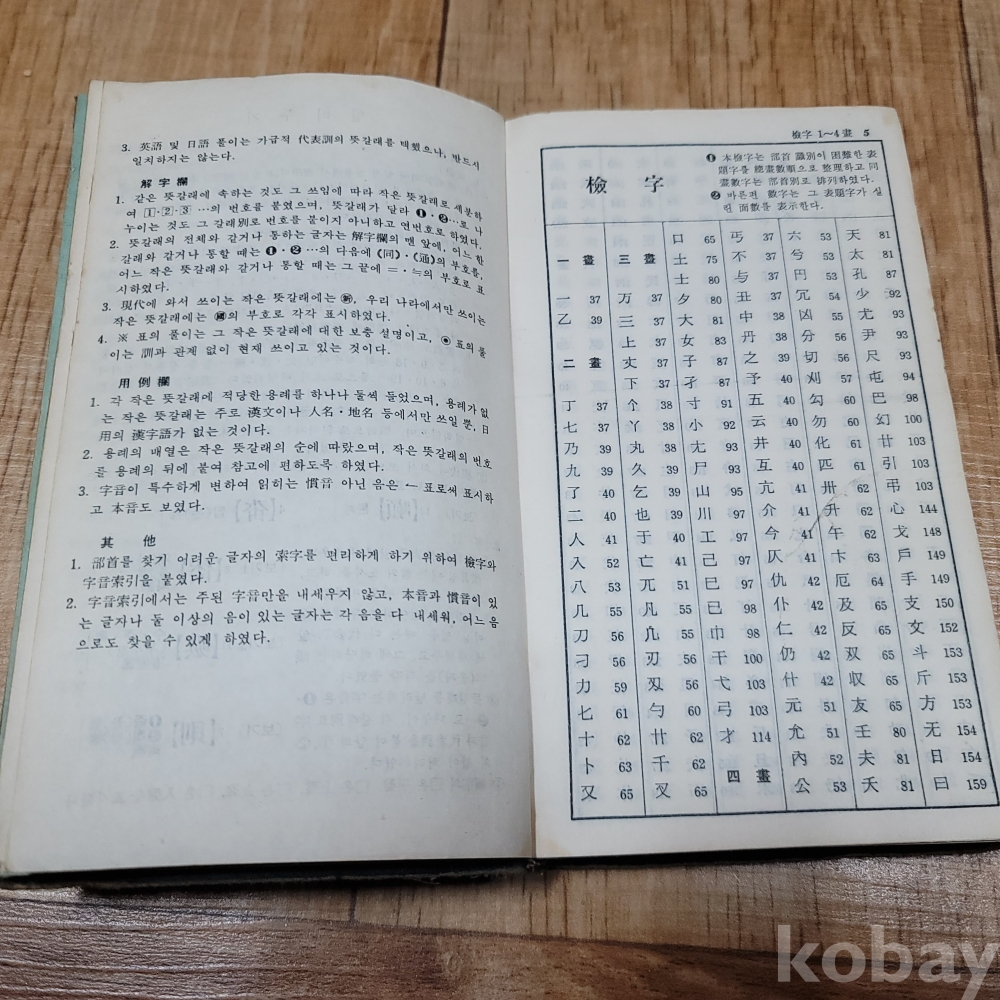 3. 英語 및 日語 풀이는 가급적 代表訓의 뜻갈래를 택했으나, 반드시
일치하지는 않는다.
解字欄
1. 같은 뜻갈래에 속하는 것도 그 쓰임에 따라 작은 뜻갈래로 세분하
여 1·2·3 …의 번호를 붙였으며, 뜻갈래가 달라 ❶·❷…로 나
누이는 것도 그 갈래別로 번호를 붙이지 아니하고 연번호로 하였다.
2. 뜻갈래의 전체와 같거나 통하는 글자는 解字欄의 맨 앞에, 어느 한
갈래와 같거나 통할 때는 ❶·❷…의 다음에 (同)·(通)의 부호를,
어느 작은 뜻갈래와 같거나 통할 때는 그 끝에 =·≒의 부호로 표
시하였다.
3. 現代에 와서 쓰이는 작은 뜻갈래에는 ㊟, 우리 나라에서만 쓰이는
작은 뜻갈래에는 國의 부호로 각각 표시하였다.
4. ※ 표의 풀이는 그 작은 뜻갈래에 대한 보충 설명이고, ◉ 표의 풀
이는 訓과 관계 없이 현재 쓰이고 있는 것이다.
用例欄
1. 각 작은 뜻갈래에 적당한 용례를 하나나 둘씩 들었으며, 용례가 없
는 작은 뜻갈래는 주로 漢文이나 人名·地名 등에서만 쓰일 뿐, 日
用의 漢字語가 없는 것이다.
2. 용례의 배열은 작은 뜻갈래의 순에 따랐으며, 작은 뜻갈래의 번호
를 용례의 뒤에 붙여 참고에 편하도록 하였다.
3. 字音이 특수하게 변하여 읽히는 慣音 아닌 음은 ー 표로써 표시하
고 本音도 보였다.
其他
1. 部首를 찾기 어려운 글자의 索字를 편리하게 하기 위하여 檢字와
字音索引을 붙였다.
2. 字音索引에서는 주된 字音만을 내세우지 않고, 本音과 慣音이 있
는 글자나 둘 이상의 음이 있는 글자는 각 음을 다 내세워, 어느 음
으로도 찾을 수 있게 하였다.
檢字 1~4畫 5
檢字
❶ 本檢字는 部首 識別이 困難한 表
題字를 總畫數順으로 整理하고 同
畫數字는 部首別로 排列하였다.
❷ 바른편 數字는 그 表題字가 실
린 面數를 表示한다.
一畫
一 37
乙 39
二畫
丁 37
七 37
乃 39
九 39
了 40
二 40
人 41
入 52
八 53
几 55
刀 56
刁 56
力 59
匕 61
十 62
卜 63
又 65
三畫
万 37
三 37
上 37
丈 37
下 37
个 38
丫 38
丸 38
久 39
乞 39
也 39
于 40
亡 41
兀 51
凡 55
凢 55
刃 56
刄 56
勺 60
卄 62
千 62
叉 65
口 65
土 75
士 80
夕 80
大 81
女 83
子 87
孑 87
寸 91
小 92
尢 93
尸 93
山 95
川 97
工 97
己 97
巳 97
已 98
巾 98
干 100
弋 103
弓 103
才 114
四畫
丐 37
不 37
与 37
丑 37
中 38
丹 38
之 39
予 40
五 40
云 40
井 40
互 40
亢 41
介 41
今 41
仄 41
仇 42
仆 42
仁 42
仍 42
什 42
元 51
允 51
內 52
公 53
六 53
兮 53
円 53
冗 54
凶 55
分 56
切 56
刈 57
勾 60
勿 60
化 61
匹 61
卅 62
升 62
午 62
卞 63
厄 64
及 65
反 65
双 65
収 65
友 65
壬 80
夫 81
夭 81
天 81
太 81
孔 87
少 92
尤 93
尹 93
尺 93
屯 94
巴 98
幻 100
廿 103
引 103
弔 103
心 144
戈 148
戶 149
手 149
支 150
文 152
斗 153
斤 153
方 153
无 154
日 154
曰 159
kobay